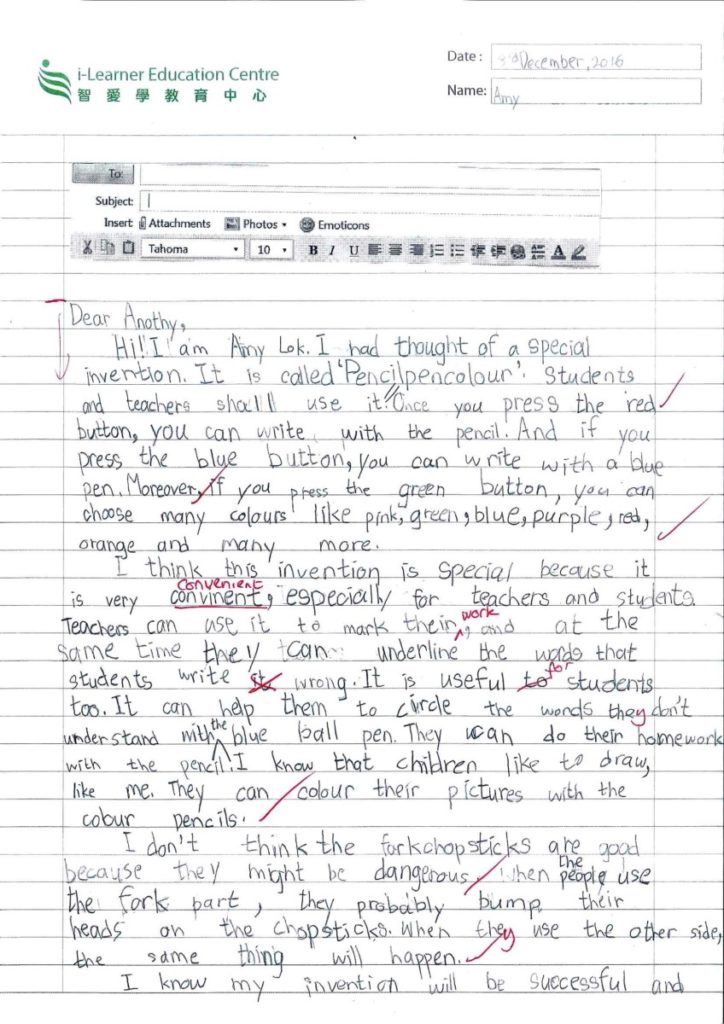 i-Learner Education Centre
智愛學教育中心
Date : 3rd December, 2016
Name: Amy
To:
Subject:
Insert: Attachments Photos Emoticons
Tahoma 10 B I U A
Dear Anothy,
Hi! I am Amy Lok. I had thought of a special
invention. It is called 'Pencilpencolour'. Students
and teachers should use it. Once you press the red
button, you can write with the pencil. And if you
press the blue button, you can write with a blue
pen. Moreover, if you press the green button, you can
choose many colours like pink, green, blue, purple, red,
orange and many more.
I think this invention is special because it
convenient
is very convinent, especially for teachers and students.
work
Teachers can use it to mark their, and at the
same time they can underline the words that
for
students write st wrong. It is useful to students
too. It can help them to circle the words they don't
the
understand with blue ball pen. They can do their homework
with the pencil. I know that children like to draw,
like me. They can colour their pictures with the
colour pencils.
I don't think the forkchopsticks are good
because they might be dangerous. When people use
the
the fork part, they probably bump their
heads on the chopsticks. When they use the other side,
the same thing will happen.
I know my invention will be successful and